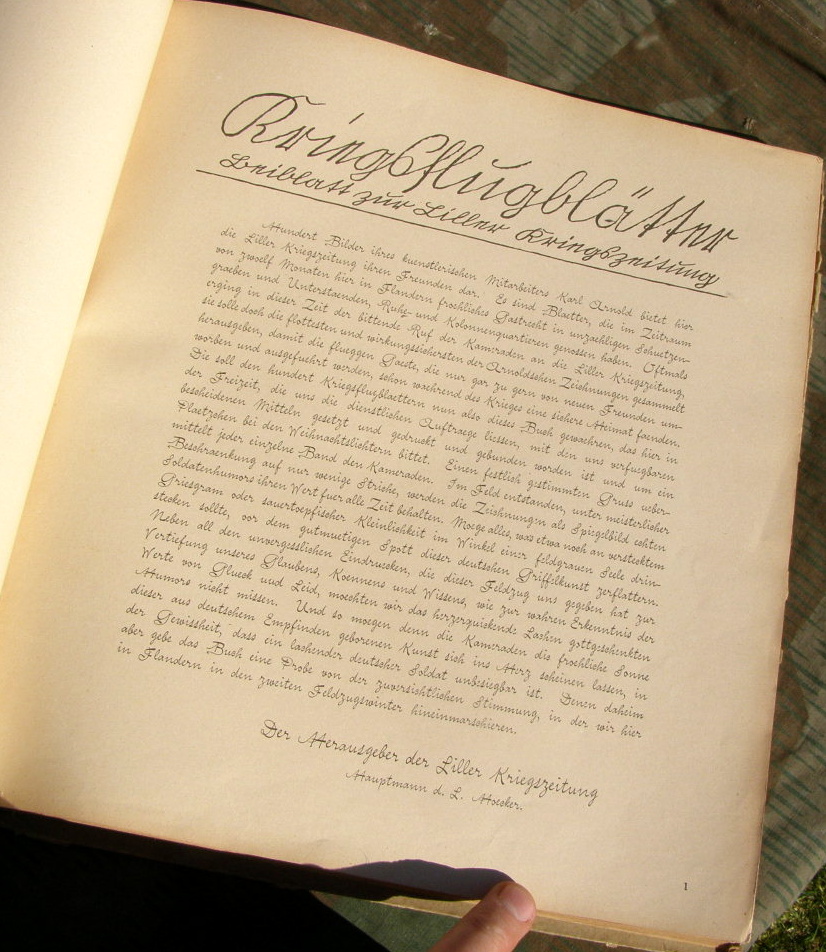 Kriegsflugblätter
Beiblatt zur Liller Kriegszeitung
Hundert Bilder ihres kuenstlerischen Mitarbeiters Karl Arnold bietet hier
die Liller Kriegszeitung ihren Freunden dar. Es sind Blaetter, die im Zeitraum
von zwoelf Monaten hier in Flandern froehliches Gastrecht in unzaehligen Schuetzen-
graeben und Unterstaenden, Ruhe- und Kolonnenquartieren genossen haben. Oftmals
erging in dieser Zeit der bittende Ruf der Kameraden an die Liller Kriegszeitung,
sie solle doch die flottesten und wirkungssichersten der Arnoldschen Zeichnungen gesammelt
herausgeben, damit die flueggen Gaeste, die nur gar zu gern von neuen Freunden um-
worben und ausgefuehrt werden, schon waehrend des Krieges eine sichere Heimat faenden.
Die soll den hundert Kriegsflugblaettern nun also dieses Buch gewaehren, das hier in
der Freizeit, die uns die dienstlichen Auftraege liessen, mit den uns verfuegbaren
bescheidenen Mitteln gesetzt und gedruckt und gebunden worden ist und um ein
Plaetzchen bei den Weihnachtslichtern bittet. Einen festlich gestimmten Gruss ueber-
mittelt jeder einzelne Band den Kameraden. Im Feld entstanden, unter meisterlicher
Beschraenkung auf nur wenige Striche, werden die Zeichnungen als Spiegelbild echten
Soldatenhumors ihren Wert fuer alle Zeit behalten. Moege alles, was etwa noch an verstecktem
Griesgram oder sauertoepfischer Kleinlichkeit im Winkel einer feldgrauen Seele drin-
stecken sollte, vor dem gutmuetigen Spott dieser deutschen Griffelkunst zerflattern.
Neben all den unvergesslichen Eindruecken, die dieser Feldzug uns gegeben hat zur
Vertiefung unseres Glaubens, Koennens und Wissens, wie zur wahren Erkenntnis der
Werte von Glueck und Leid, moechten wir das herzerquickende Lachen gottgeschenkten
Humors nicht missen. Und so moegen denn die Kameraden die froehliche Sonne
dieser aus deutschem Empfinden geborenen Kunst sich ins Herz scheinen lassen, in
der Gewissheit, dass ein lachender deutscher Soldat unbesiegbar ist. Denen daheim
aber gebe das Buch eine Probe von der zuversichtlichen Stimmung, in der wir hier
in Flandern in den zweiten Feldzugswinter hineinmarschieren.
Der Herausgeber der Liller Kriegszeitung
Hauptmann d. L. Hoecker.
1